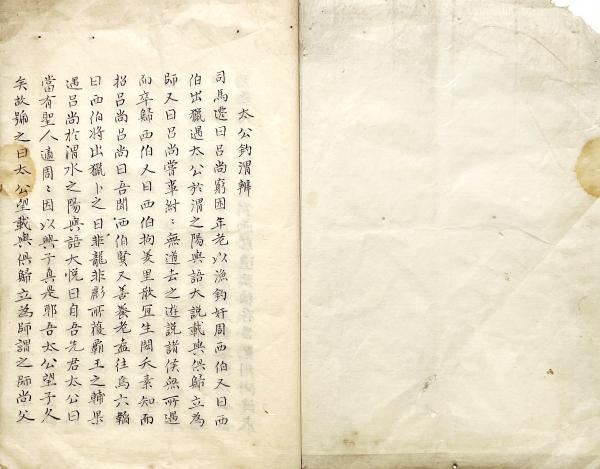 太公釣渭辨
司馬遷曰呂尚窮困年老以漁釣奸周西伯又曰西
伯出獵遇太公於渭之陽與語大說載與俱歸立為
師又曰呂尚嘗事紂〻無道去之遊說諸侯無所遇
而卒歸西伯又曰西伯拘羑里散宜生閎夭素知而
招呂尚呂尚曰吾聞西伯賢又善養老盍往焉六韜
曰西伯將出獵卜之曰非龍非彨所獲霸王之輔果
遇呂尚於渭水之陽與語大悅曰自吾先君太公曰
當有聖人適周〻因以興子真是耶吾太公望子久
矣故號之曰太公望載與俱歸立為師謂之師尚父